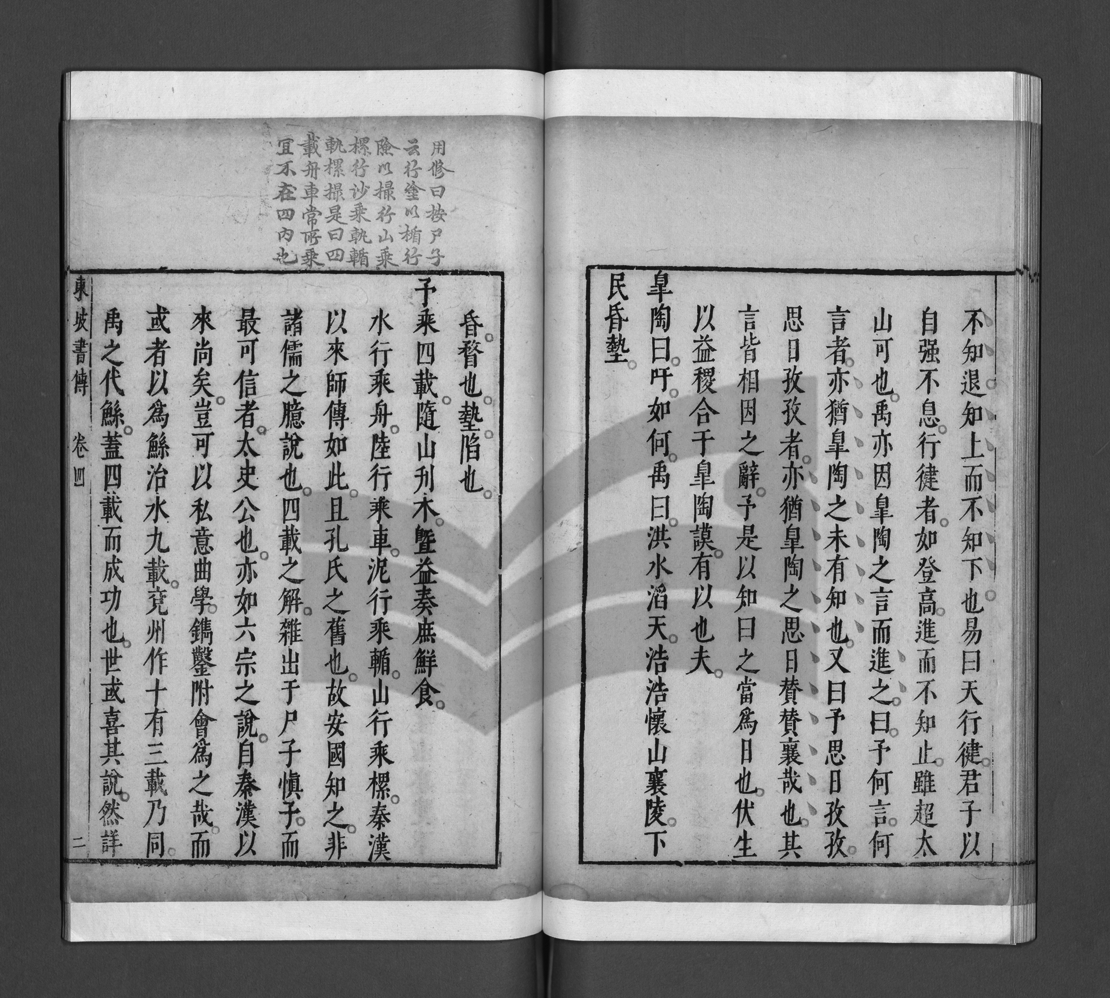 不知退知上而不知下也易曰天行徤君子以
自强不息行徤者如登高進而不知止雖超太
山可也禹亦因皐陶之言而進之曰予何言何
言者亦猶皐陶之未有知也又曰予思日孜孜
思日孜孜者亦猶皐陶之思日賛賛襄哉也其
言皆相因之辭予是以知曰之當爲日也伏生
以益稷合于皐陶謨有以也夫
皐陶曰吁如何禹曰洪水滔天浩浩懷山襄陵下
民昏墊
昏瞀也墊陷也
予乘四載隨山刋木曁益奏庶鮮食
水行乘舟陸行乘車泥行乘輴山行乘樏秦漢
以來師傳如此且孔氏之舊也故安國知之非
諸儒之臆說也四載之解雜出于尸子愼子而
最可信者太史公也亦如六宗之說自秦漢以
來尚矣豈可以私意曲學鐫鑿附會爲之哉而
或者以爲鯀治水九載兖州作十有三載乃同
禹之代鯀蓋四載而成功也世或喜其說然詳
東坡書傳 卷四 二
用修曰按尸子
云行塗以楯行
險以撮行山乘
樏行沙乘軌輴
軌樏撮是曰四
載舟車常所乘
宜不在四內也